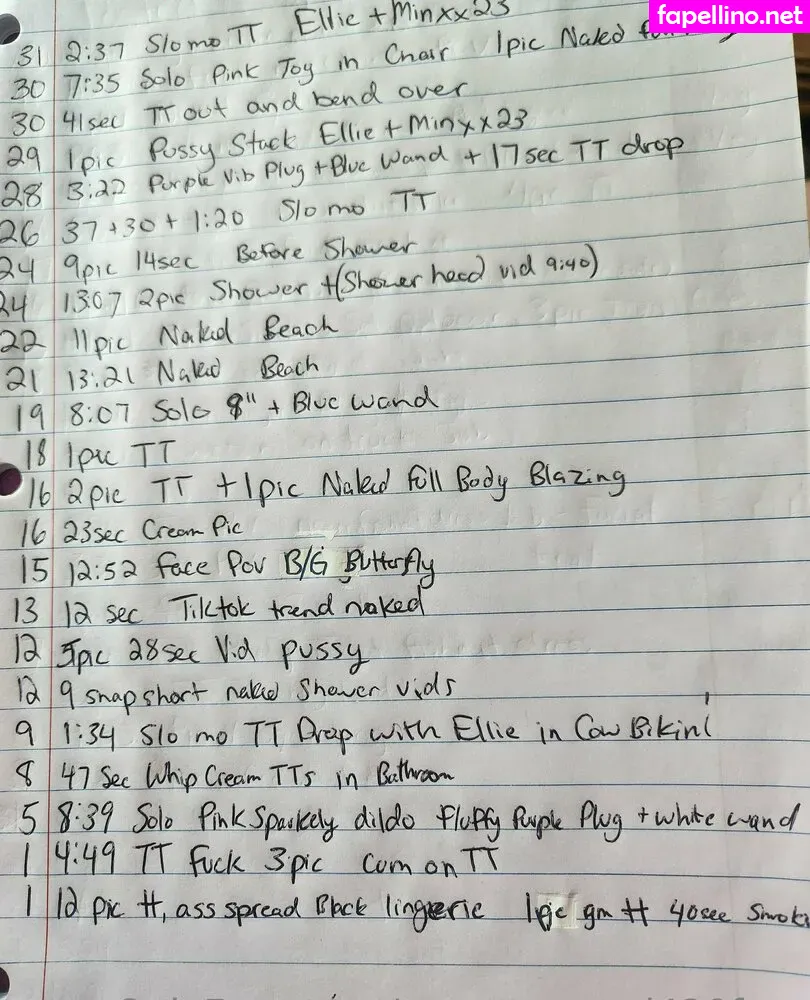 fapellino.net
31 2:37 Slo mo TT Ellie + Minxx23
30 7:35 Solo Pink Toy in Chair 1pic Naked
30 41sec TT out and bend over
29 1pic Pussy Stack Ellie + Minxx23
28 3:22 Purple Vib Plug + Blue Wand + 17sec TT drop
26 37+30+1:20 Slo mo TT
24 9pic 14sec Before Shower
24 13:07 2pic Shower + (Shower head vid 9:40)
22 11pic Naked Beach
21 13:21 Naked Beach
19 8:07 Solo 8" + Blue wand
18 1pic TT
16 2pic TT + 1pic Naked Full Body Blazing
16 23sec Cream Pic
15 12:52 Face Pov B/G Butterfly
13 12 sec Tiktok trend naked
12 5pic 28sec Vid pussy
12 9 snap short naked Shower vids
9 1:34 Slo mo TT Drop with Ellie in Cow Bikini
8 47 Sec Whip Cream TTs in Bathroom
5 8:39 Solo Pink Sparkely dildo fluffy Purple Plug + white wand
1 4:49 TT Fuck 3pic cum on TT
1 12 pic H, ass spread Black lingerie 1pic gm H 40sec